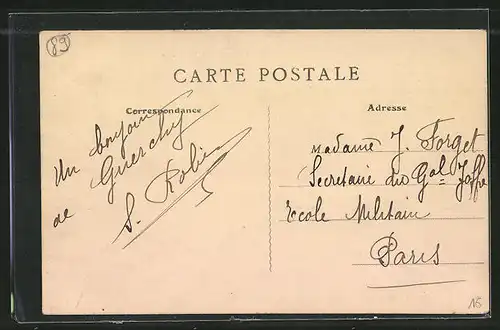 89
CARTE POSTALE
Correspondance
Adresse
Un bonjour
de Guerchy
S. Robin
Madame J. Forget
Secretaire du Gal Joffre
Ecole Militair
Paris
15